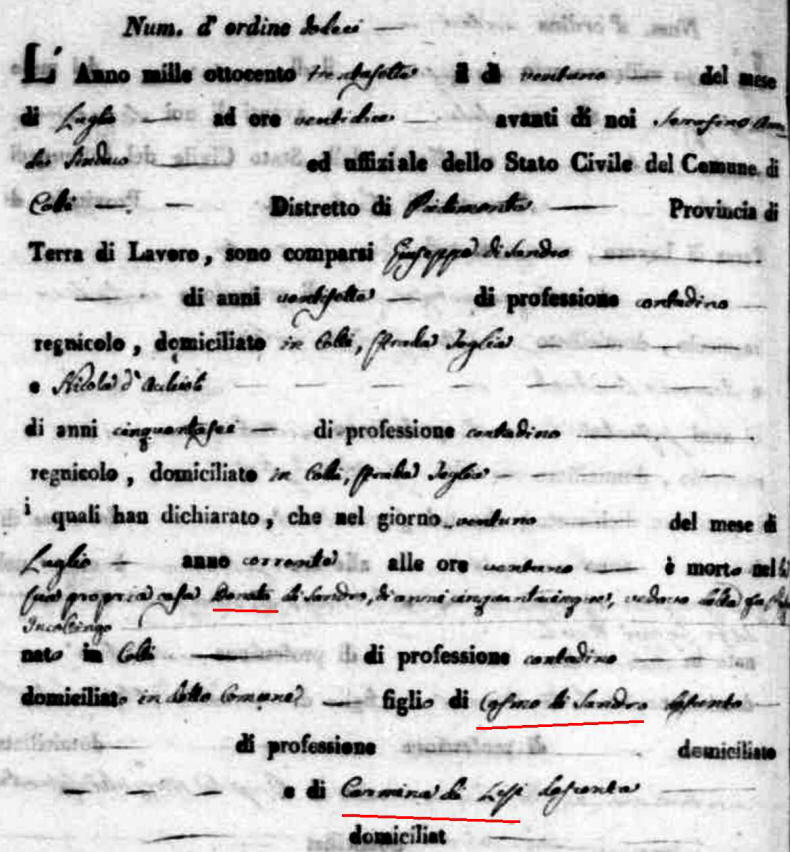 Num. d' ordine dodeci
L' Anno mille ottocento trentasette il dì ventuno del mese
di Luglio ad ore ventidue avanti di noi Serafino
Sindaco ed uffiziale dello Stato Civile del Comune di
Colli Distretto di Piedimonte Provincia di
Terra di Lavoro, sono comparsi Giuseppe di Sandro
di anni ventisette di professione contadino
regnicolo, domiciliato in Colli, strada
e Nicola
di anni cinquantasei di professione contadino
regnicolo, domiciliato in Colli, strada
i quali han dichiarato, che nel giorno ventuno del mese di
Luglio anno corrente alle ore ventuno è morto nella
sua propria casa Donato di Sandro, di anni cinquantacinque, vedovo della fu
Incollingo
nato in Colli di professione contadino
domiciliato in detto Comune figlio di Cosmo di Sandro defunto
di professione domiciliato
e di Carmina di defunta
domiciliat